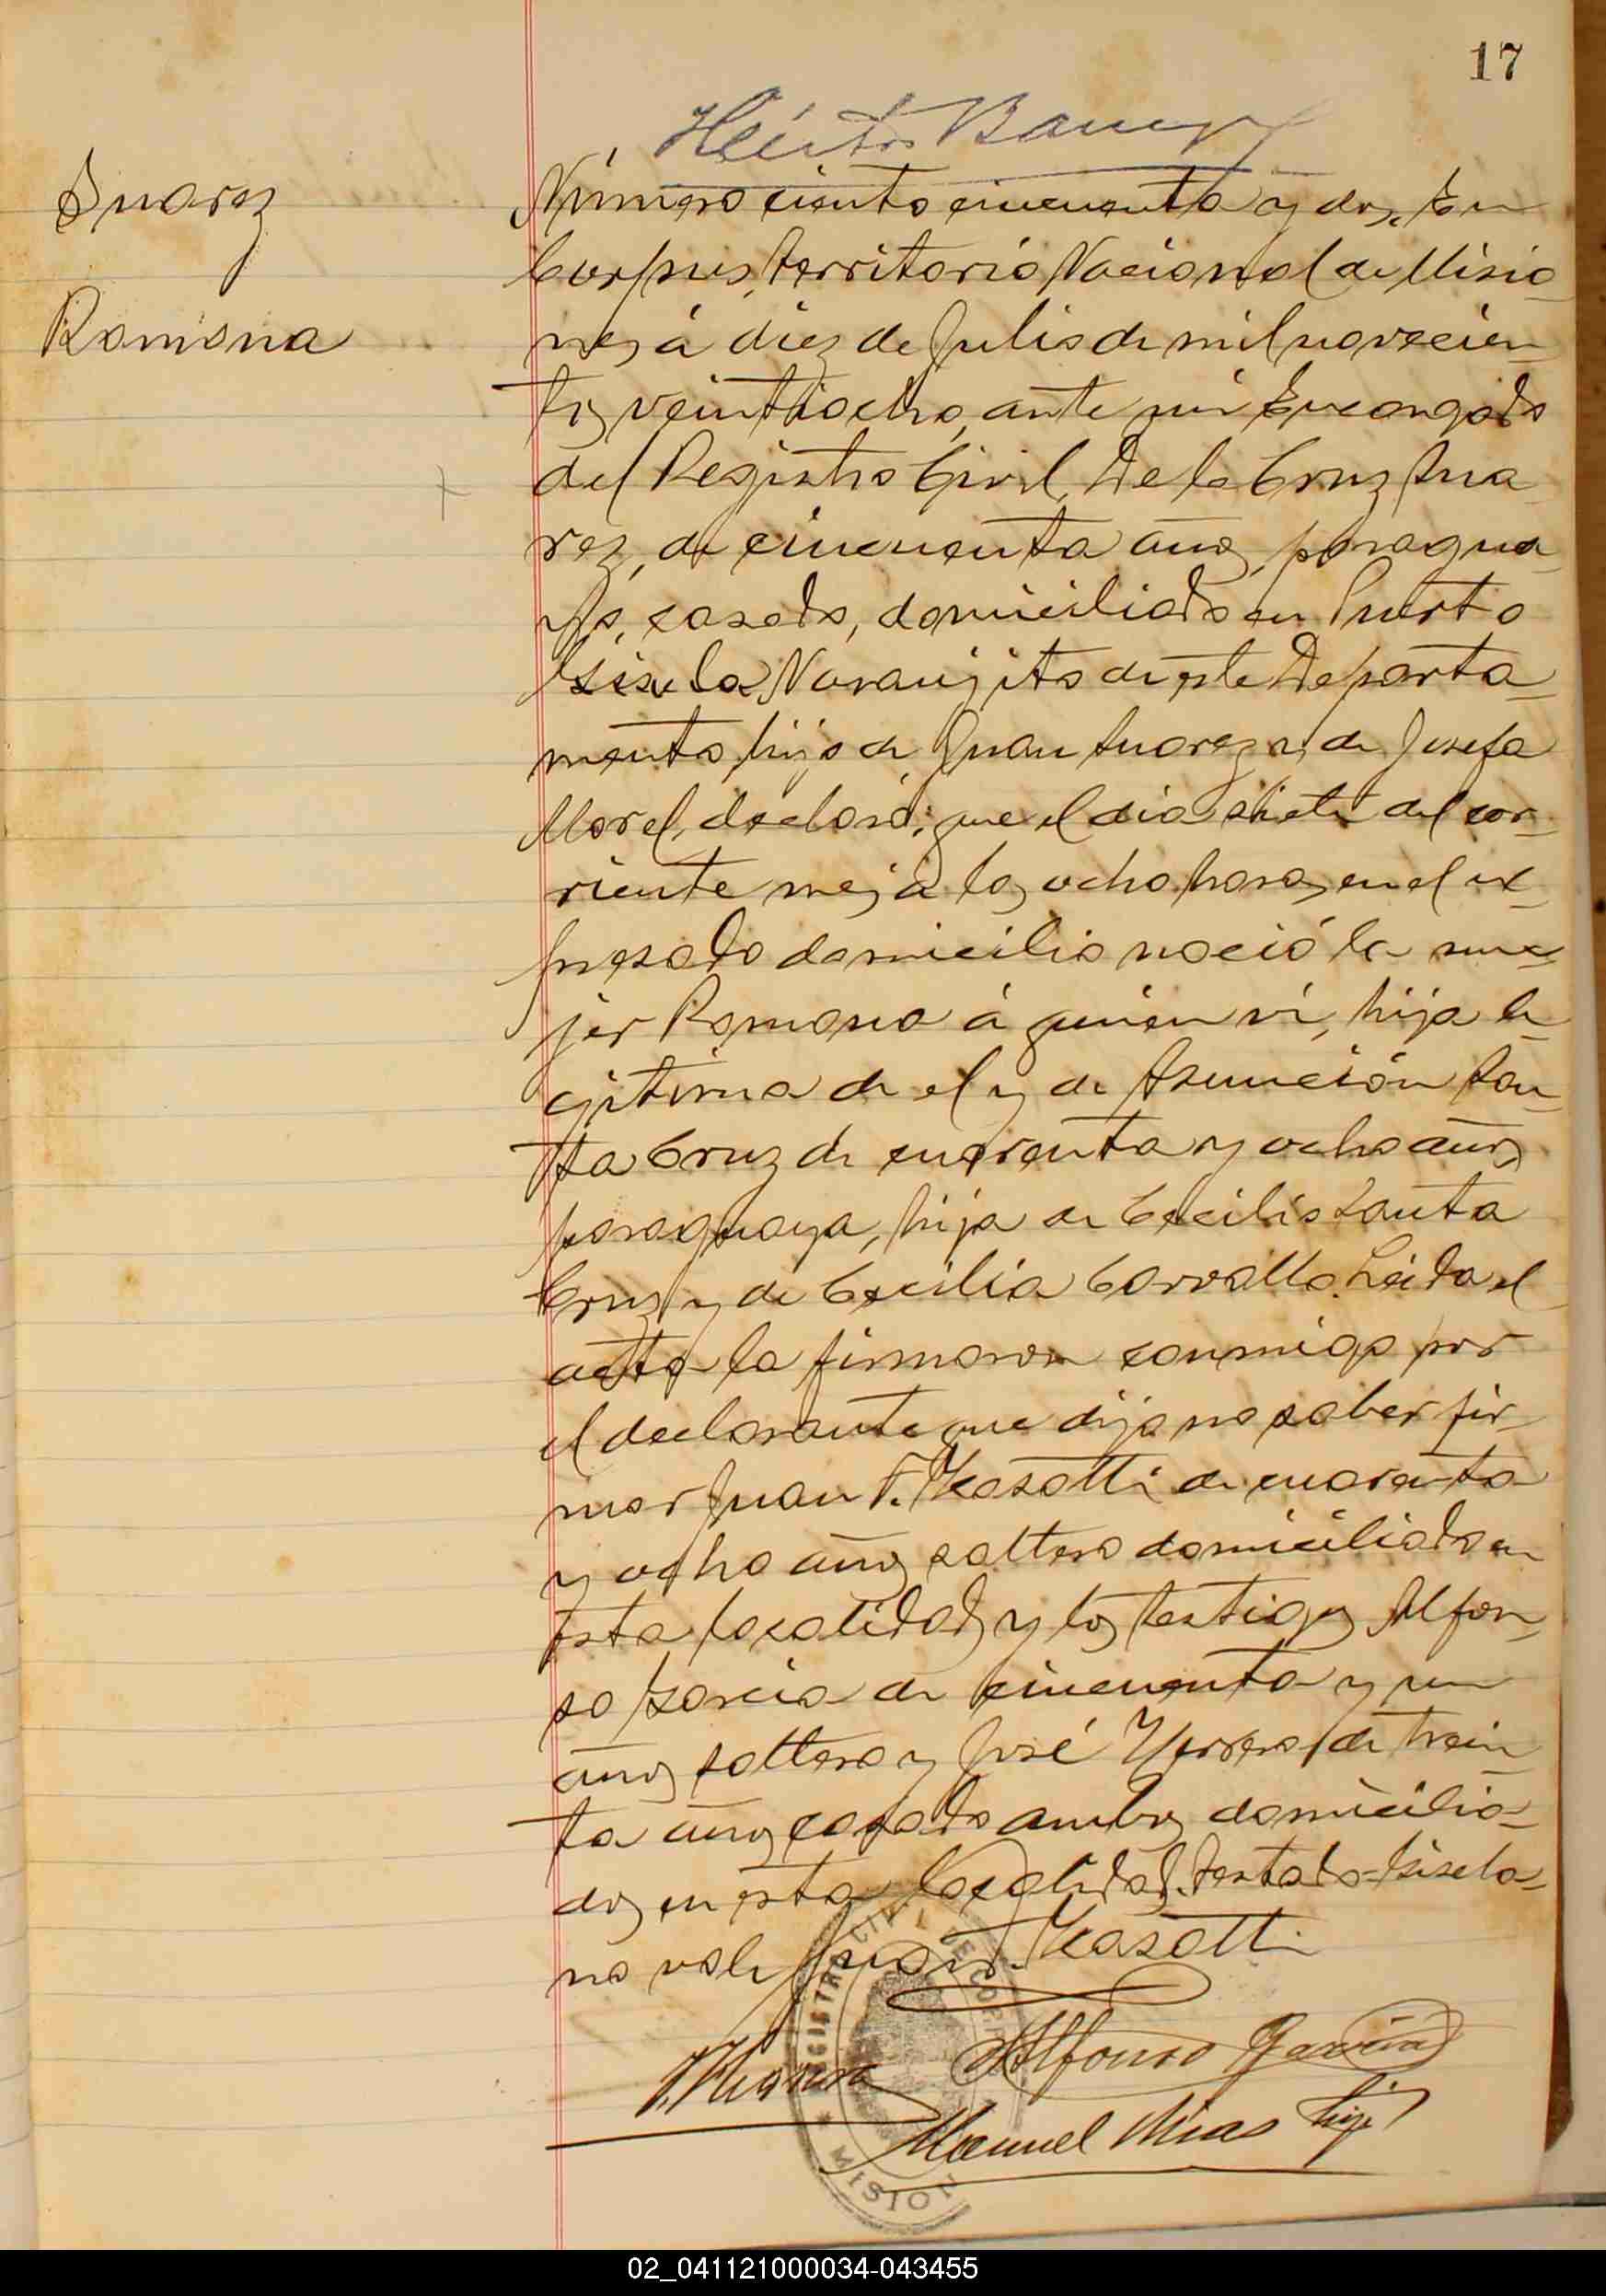 17
Héctor
Suarez
Ramona
Número ciento cincuenta y dos, En
Corpus, Territorio Nacional de Misio-
nes á diez de Julio de mil novecien-
tos veintiocho, ante mí Encargado
del Registro Civil, De la Cruz Sua
rez, de cincuenta años, paragua-
yo, casado, domiciliado en Puerto
Gisela Naranjito de este Departa-
mento, hijo de Juan Suarez y de Josefa
Morel, declaró: que el día siete del cor-
riente mes á las ocho horas, en el ex-
presado domicilio nació la mu-
jer Ramona á quien vi, hija le-
gitima de el y de Asunción San-
ta Cruz de cuarenta y ocho años,
paraguaya, hija de Cecilio Santa
Cruz y de Cecilia Carvallo. Leida el
acta la firmaron conmigo por
el declarante que dijo no saber fir-
mar Juan F. Kasatti de cuarenta
y ocho años soltero domiciliado en
esta localidad y los testigos Alfon-
so Garcia de cincuenta y un
años soltero y José de trein-
ta años casado ambos domicilia-
dos en esta localidad. Testado=Gisela=
no vale Juan F. Kasatti
Alfonso Garcia
Manuel hijo
REGISTRO CIVIL DE CORPUS
* MISION
02_041121000034-043455